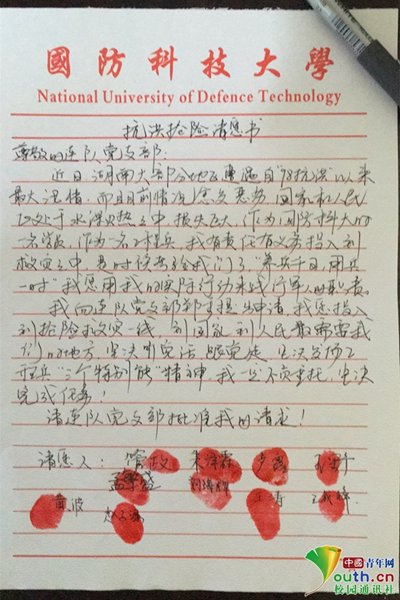 國防科技大學
National University of Defence Technology
抗洪抢险请愿书
尊敬的连队党支部:
近日湖南大部分地区遭遇自"98抗洪"以来
最大汛情,而且目前情况愈发恶劣,国家和人民
已处于水深火热之中,损失巨大,作为国防科大的
一名学员,作为一名工程兵,我有责任有义务投入到
救灾之中,是时候去给我们了"养兵千日,用兵
一时"我愿用我的实际行动来践行军人的职责。
我向连队党支部郑重提出申请,我愿投入
到抢险救灾一线,到国家到人民最需要我
们的地方,坚决听党话,跟党走,坚决发扬工
程兵"三个特别能"精神,我一定不负重托,坚决
完成任务!
请连队党支部批准我的请求!
请愿人:
黄波
中國青年网
youth.cn
校园通讯社